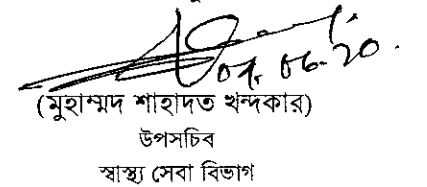 ০৭.০৬.২০.
(মুহাম্মদ শাহাদত খন্দকার)
উপসচিব
স্বাস্থ্য সেবা বিভাগ